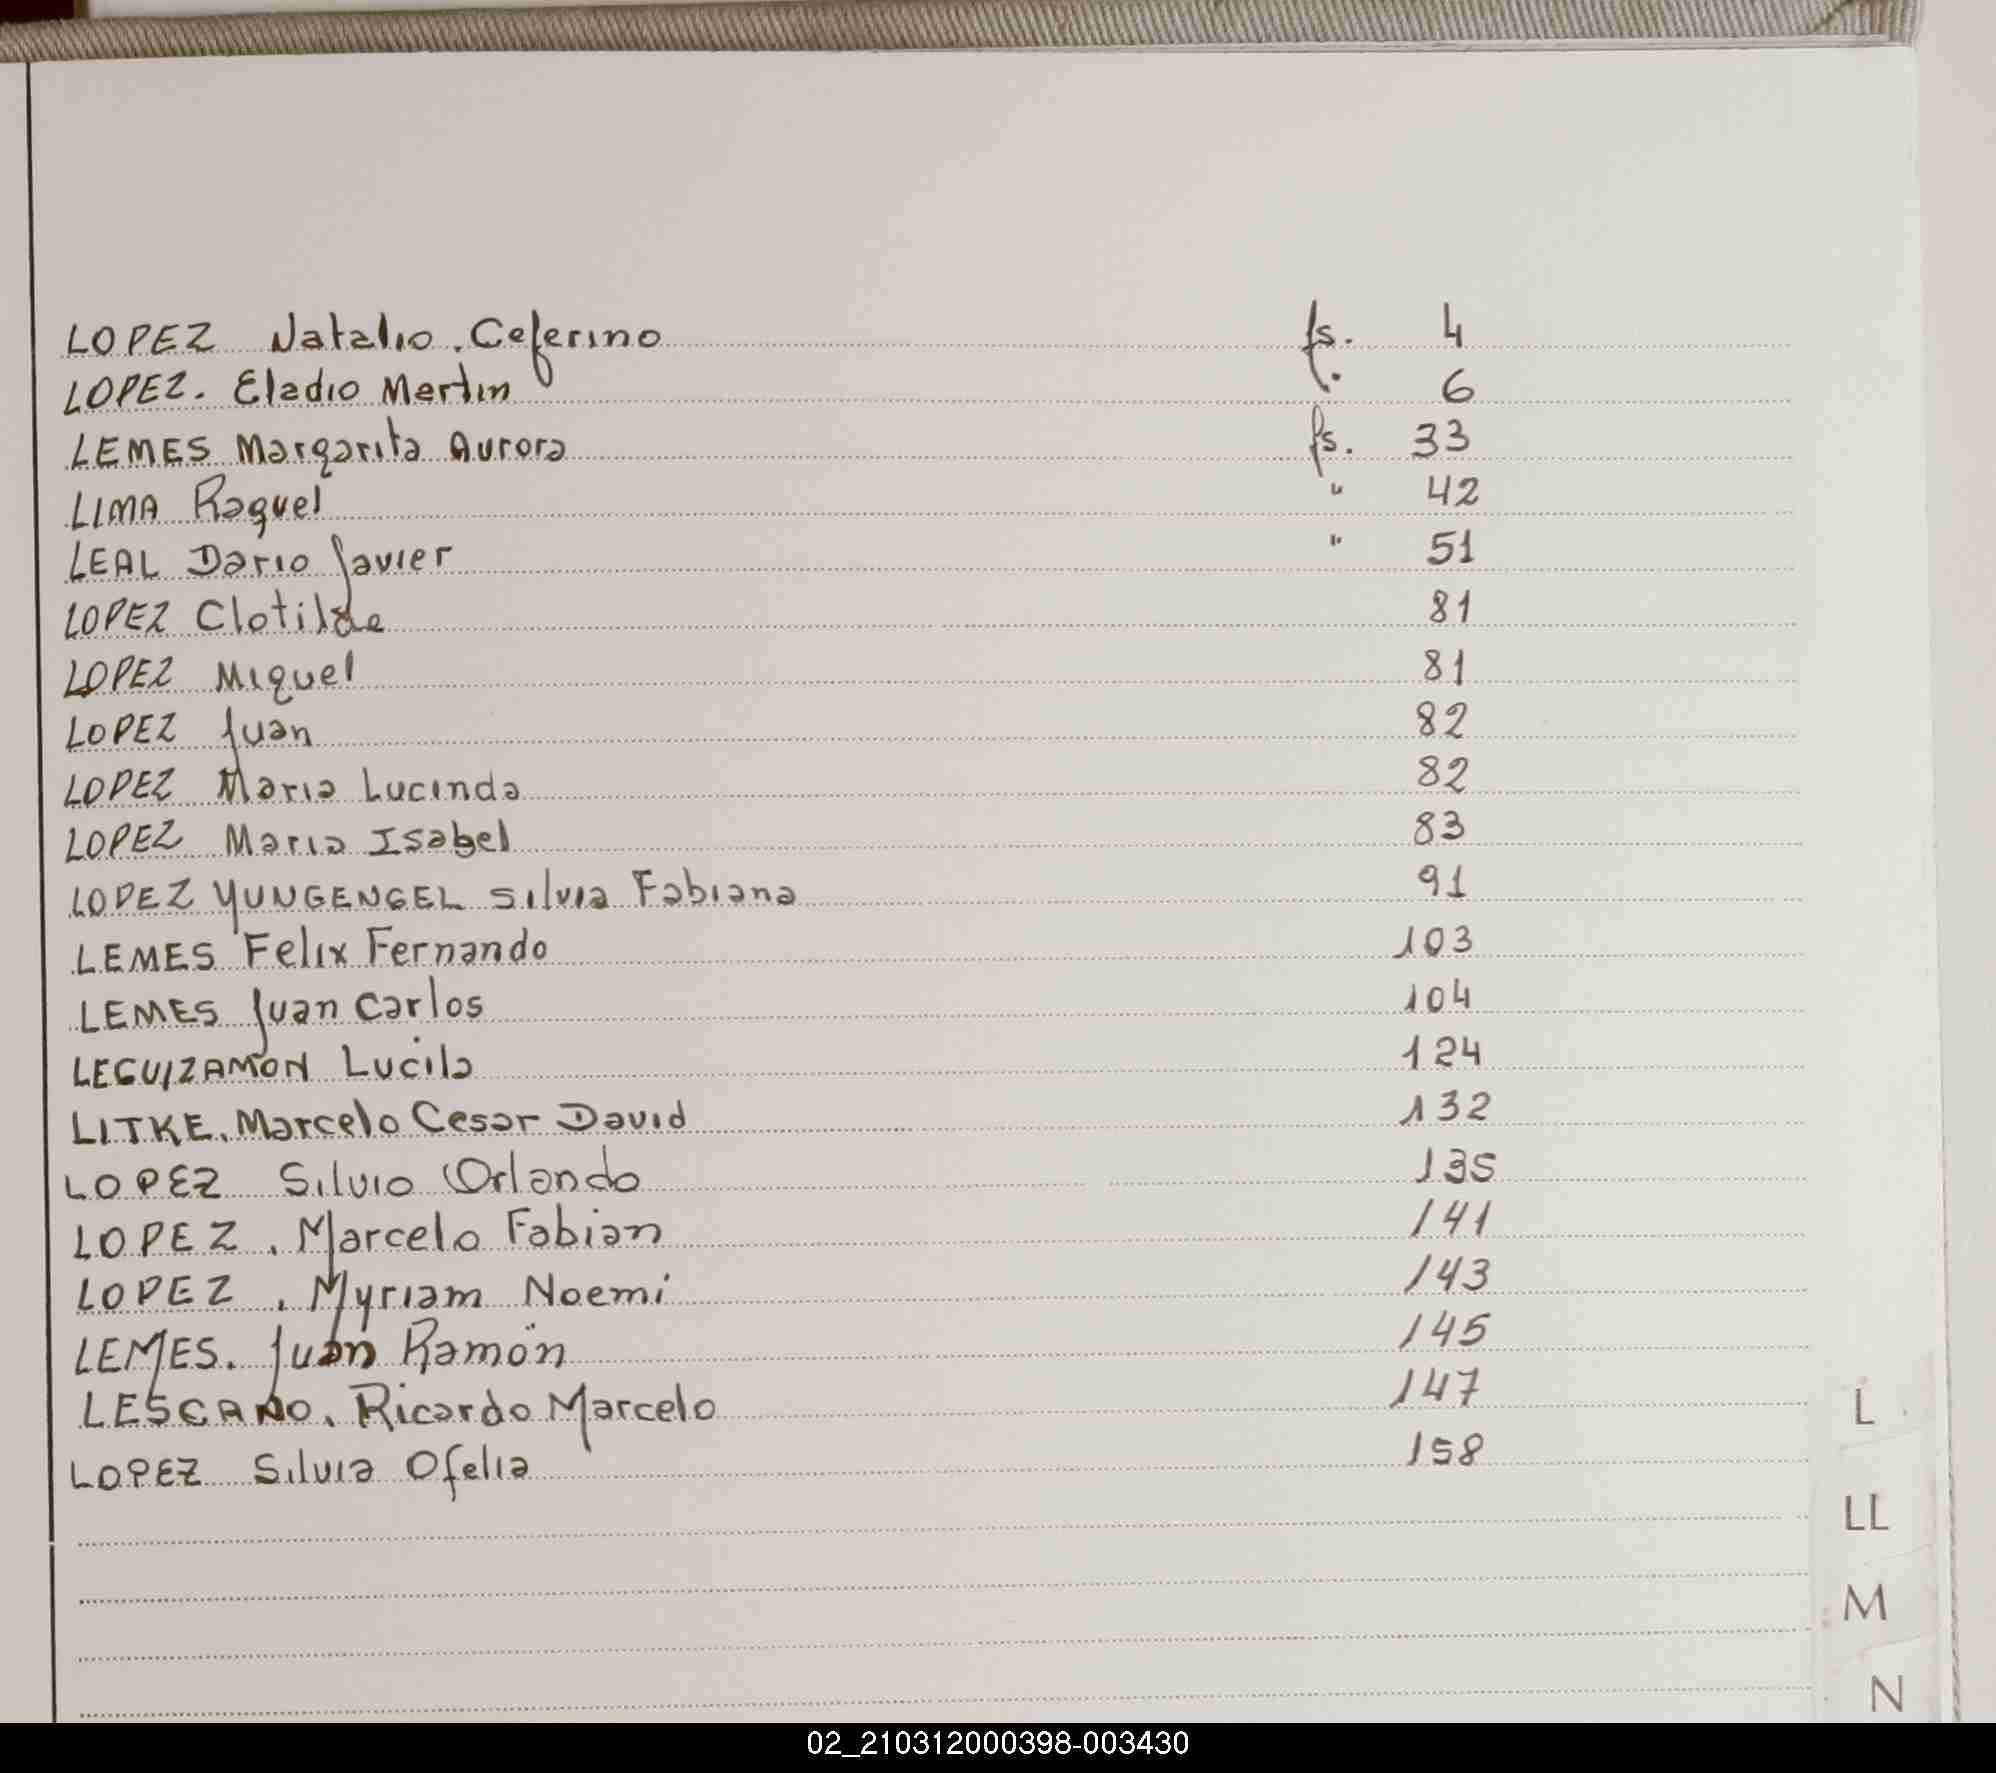 LOPEZ Natalio. Ceferino fs. 4
LOPEZ. Eladio Martin " 6
LEMES Margarita Aurora fs. 33
LIMA Raquel " 42
LEAL Dario Javier " 51
LOPEZ Clotilde 81
LOPEZ Miguel 81
LOPEZ Juan 82
LOPEZ Maria Lucinda 82
LOPEZ Maria Isabel 83
LOPEZ YUNGENGEL Silvia Fabiana 91
LEMES Felix Fernando 103
LEMES Juan Carlos 104
LEGUIZAMON Lucila 124
LITKE. Marcelo Cesar David 132
LOPEZ Silvio Orlando 135
LOPEZ. Marcelo Fabian 141
LOPEZ. Myriam Noemi 143
LEMES. Juan Ramón 145
LESCANO. Ricardo Marcelo 147
LOPEZ Silvia Ofelia 158
L
LL
M
N
02_210312000398-003430